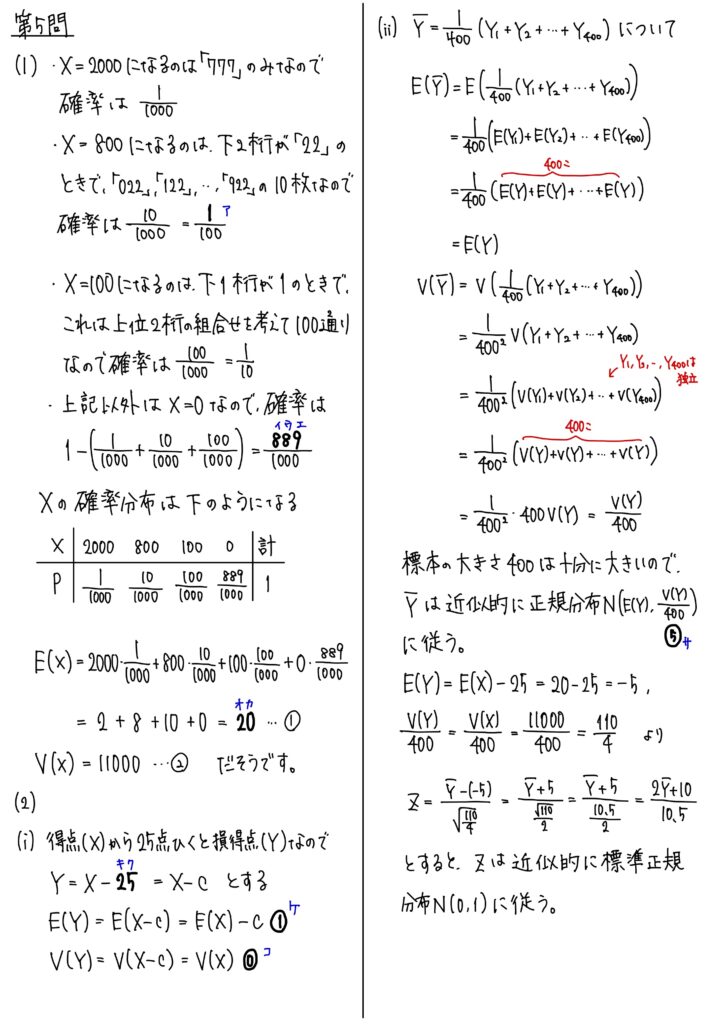 第5問
(1) ・X=2000になるのは「777」のみなので
確率は 1/1000
・X=800になるのは、下2桁が「22」の
ときで、「022」,「122」,…,「922」の10枚なので
確率は 10/1000 = 1/100 ア
・X=100になるのは、下1桁が1のときで、
これは上位2桁の組合せを考えて100通り
なので確率は 100/1000 = 1/10
・上記以外はX=0なので、確率は
イウエ
1-(1/1000+10/1000+100/1000)=889/1000
Xの確率分布は下のようになる
X 2000 800 100 0 計
P 1/1000 10/1000 100/1000 889/1000 1
E(X)=2000・1/1000+800・10/1000+100・100/1000+0・889/1000
オカ
=2+8+10+0=20 …①
V(X)=11000 …② だそうです。
(2)
(i) 得点(X)から25点ひくと損得点(Y)なので
キク
Y=X-25=X-c とする
E(Y)=E(X-c)=E(X)-c ① ケ
V(Y)=V(X-c)=V(X) ⓪ コ
(ii) Y̅=1/400(Y₁+Y₂+…+Y₄₀₀)について
E(Y̅)=E(1/400(Y₁+Y₂+…+Y₄₀₀))
=1/400(E(Y₁)+E(Y₂)+…+E(Y₄₀₀))
400こ
=1/400(E(Y)+E(Y)+…+E(Y))
=E(Y)
V(Y̅)=V(1/400(Y₁+Y₂+…+Y₄₀₀))
=1/400² V(Y₁+Y₂+…+Y₄₀₀)
Y₁,Y₂,…,Y₄₀₀は
独立
=1/400²(V(Y₁)+V(Y₂)+…+V(Y₄₀₀))
400こ
=1/400²(V(Y)+V(Y)+…+V(Y))
=1/400²・400V(Y)=V(Y)/400
標本の大きさ400は十分に大きいので、
Y̅は近似的に正規分布N(E(Y),V(Y)/400)
⑤ サ
に従う。
E(Y)=E(X)-25=20-25=-5,
V(Y)/400=V(X)/400=11000/400=110/4 より
Z=(Y̅-(-5))/√(110/4)=(Y̅+5)/(√110/2)=(Y̅+5)/(10.5/2)=(2Y̅+10)/10.5
とすると、Zは近似的に標準正規
分布N(0,1)に従う。